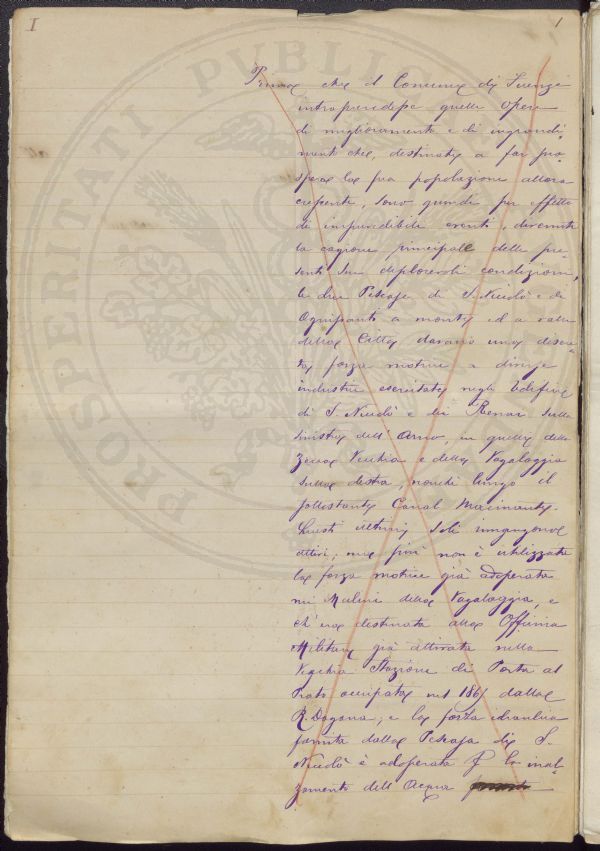 I
1
Prima che il Comune di Firenze
intraprendesse quelle Opere
di miglioramento e di ingrandi-
mento che, destinate a far pro-
sperare la sua popolazione allora
crescente, sono quindi per effetto
di imprevedibili eventi, divenute
la cagione principale delle pre-
senti sue deplorevoli condizioni,
le due Pescaje di S. Niccolò e di
Ognissanti a monte ed a valle
della Città davano una discre-
ta forza motrice a diverse
industrie esercitate negli Edifizi
di S. Niccolò e dei Renai sulla
sinistra dell'Arno, in quelli della
Zecca Vecchia e della Vagaloggia
sulla destra, nonché lungo il
sottostante Canal Macinante.
Questi ultimi soli rimangono
attivi, ma più non è utilizzata
la forza motrice già adoperata
nei Mulini della Vagaloggia, e
ch'era destinata alla Officina
Militare già attivata nella
Vecchia Stazione di Porta al
Prato occupata nel 186 dalla
R. Dogana; e la forza idraulica
fornita dalla Pescaja di S.
Niccolò è adoperata p la inal-
zamento dell'Acqua
PROSPERITATI PVBLICAE